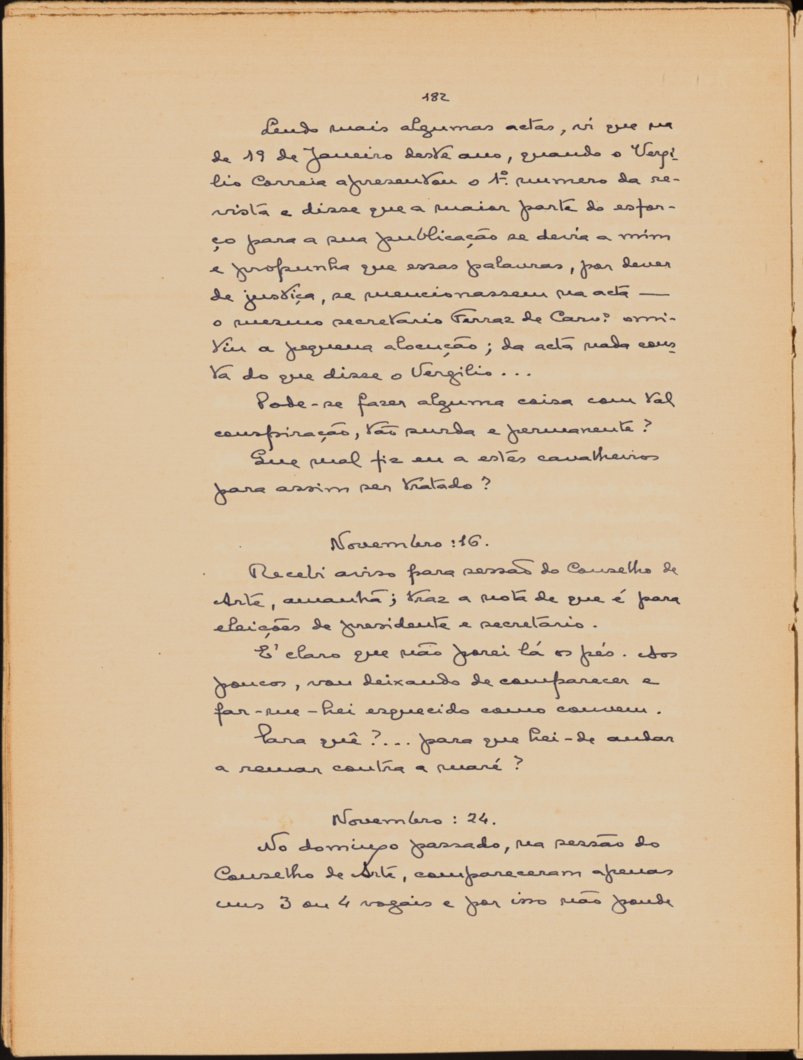 182
Lendo mais algumas actas, vi que na
de 19 de Janeiro deste ano, quando o Vergi-
lio Correia apresentou o 1º. numero da re-
vista e disse que a maior parte do esfor-
ço para a sua publicação se devia a mim
e propunha que essas palavras, por dever
de justiça, se mencionassem na acta —
o mesmo secretario Ferraz de Carvº omi-
tiu a pequena alocução; da acta nada cons-
ta do que disse o Vergilio...
Pode-se fazer alguma coisa com tal
conspiração, tão surda e permanente?
Que mal fiz eu a estes cavalheiros
para assim ser tratado?
Novembro: 16.
Recebi aviso para sessão do Conselho de
Arte, amanhã; traz a nota de que é para
eleições de presidente e secretario.
E' claro que não porei lá os pés. Aos
poucos, vou deixando de comparecer e
far-me-hei esquecido como convem.
Para quê?... para que hei-de andar
a remar contra a maré?
Novembro: 24.
No domingo passado, na sessão do
Conselho de Arte, compareceram apenas
uns 3 ou 4 vogais e por isso não poude